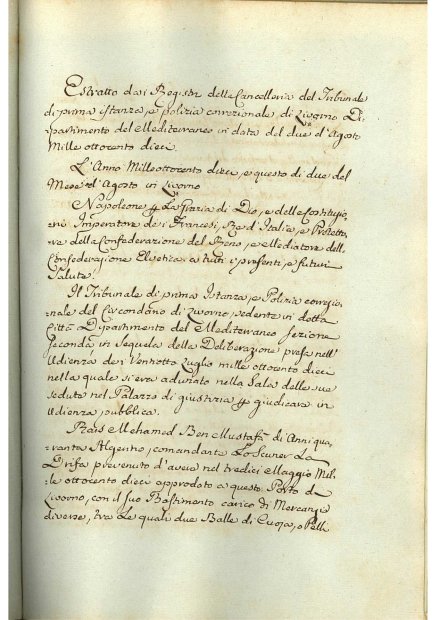 Estratto dai Registri della Cancelleria del Tribunale
di prima istanza, e polizia correzionale di Livorno Di
partimento del Mediterraneo in data del due d'Agosto
Mille ottocento dieci.
L'Anno Mille ottocento dieci, e questo dì due del
Mese d'Agosto in Livorno
Napoleone per La Grazia di Dio, e delle Costituzio,
ni Imperatore dei Francesi, Re d'Italia, e Protetto,
re della Confederazione del Reno, e Mediatore della
Confederazione Elvetica a tutti i presenti, e futuri
Salute.
Il Tribunale di prima Istanza, e Polizia correzio,
nale del Circondario di Livorno, sedente in detta
Città Dipartimento del Mediterraneo sezione
seconda in Sequela della Deliberazione presa nell'
Udienza dei Ventotto Luglio mille ottocento dieci
nella quale si era adunato nella Sala delle sue
sedute nel Palazzo di giustizia per giudicare in
Udienza pubblica.
Rais Mehamed Ben Mustafà di Anni qua,
ranta Algerino, comandante Lo Scuner La
Grifa prevenuto d'avere nel tredici Maggio Mil,
le ottocento dieci approdato a questo Porto di
Livorno, con il suo Bastimento carico di Mercanzie
diverse, tra Le quali due Balle di Cuoja, o Pelli